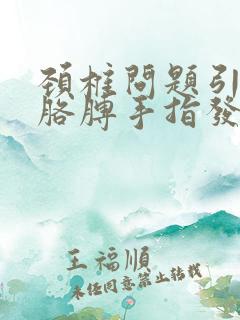 頚椎問題引
胳膊手指發
王福順
未經同意禁止轉載